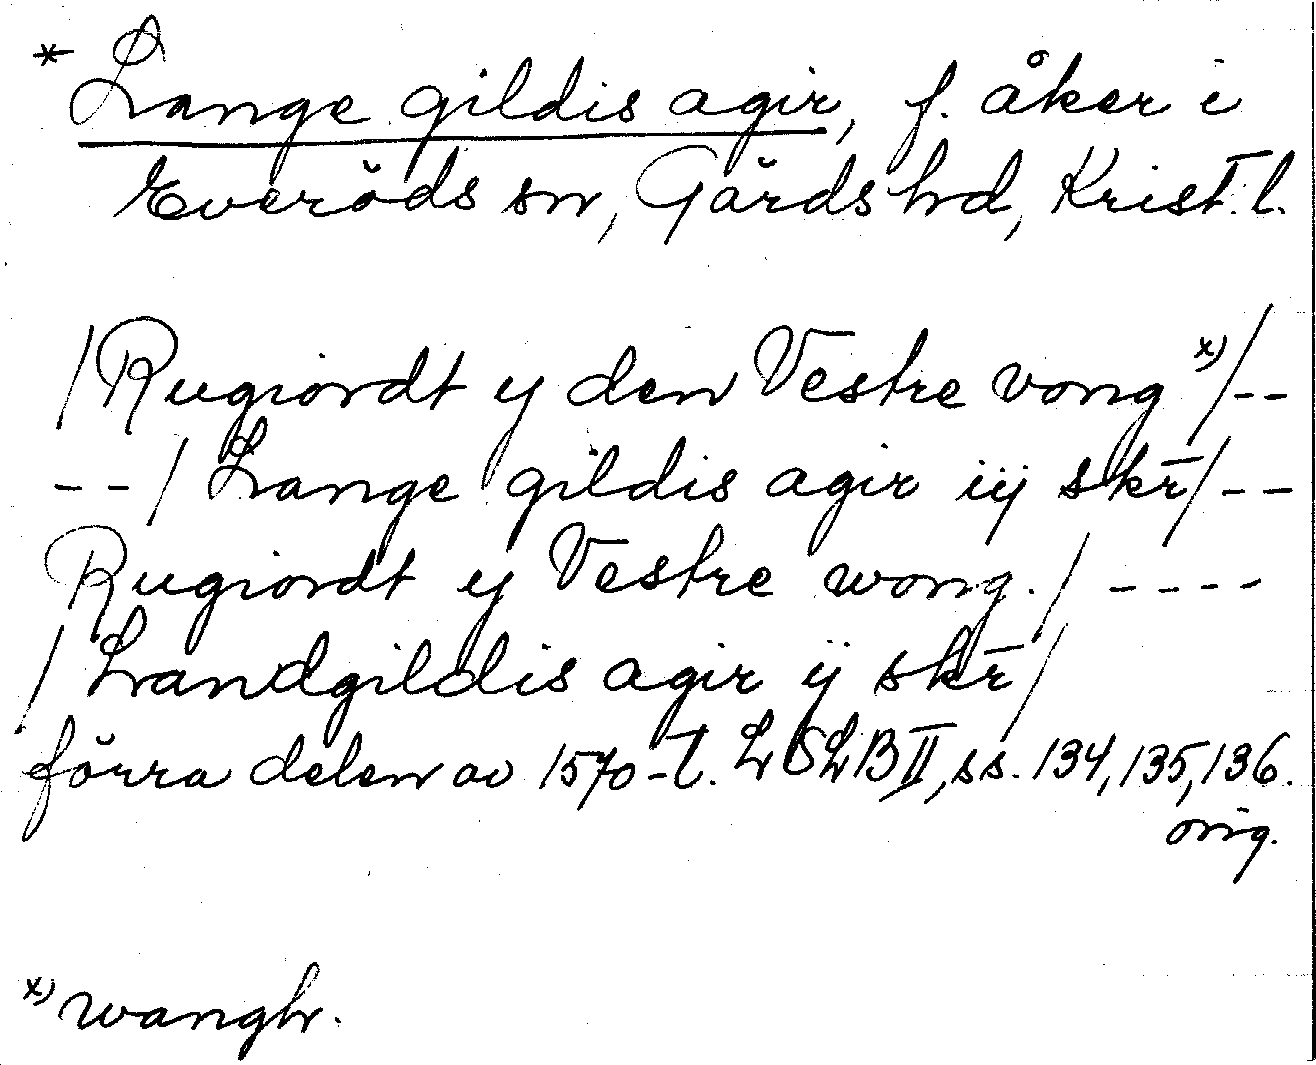 * Lange gildis agir, f. åker i
Everöds sn, Gärds hd, Krist. l.
/Rugiordt y den Vestre vong x)/--
--/ Lange gildis agir iij skr̄/--
Rugiordt y Vestre wong./ ----
/ Landgildis agir ij skr̄/
förra delen av 1570-t. LSLB II, ss. 134, 135, 136.
orig.
x) wangh.